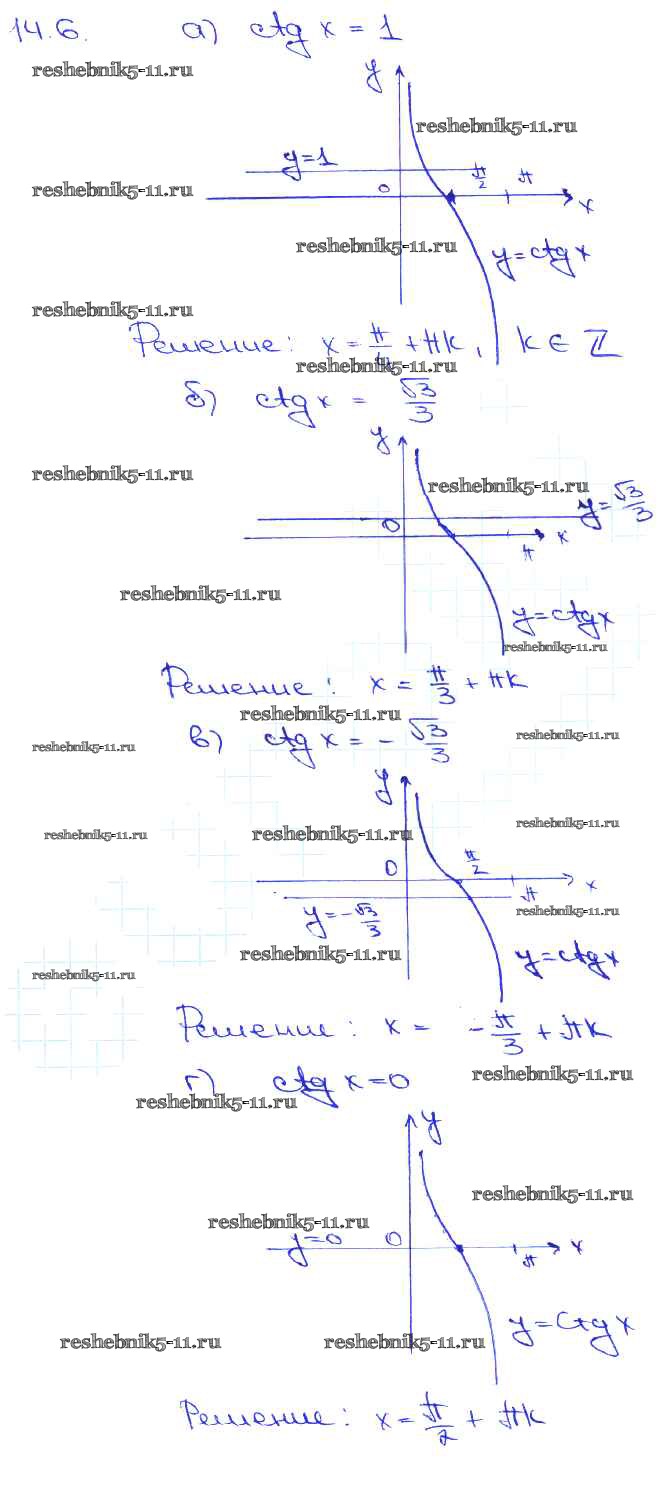 14.6. а) ctg x = 1
reshebnik5-11.ru
y
reshebnik5-11.ru
y=1
π/2 π
reshebnik5-11.ru
0
x
reshebnik5-11.ru
y=ctg x
reshebnik5-11.ru
Решение: x = π/4 + πk, k ∈ Z
reshebnik5-11.ru
б) ctg x = √3/3
y
reshebnik5-11.ru
reshebnik5-11.ru
y=√3/3
0
x
π
reshebnik5-11.ru
y=ctg x
reshebnik5-11.ru
Решение: x = π/3 + πk
reshebnik5-11.ru
в) ctg x = -√3/3
reshebnik5-11.ru
reshebnik5-11.ru
y
reshebnik5-11.ru
reshebnik5-11.ru
reshebnik5-11.ru
0
π/2
x
π
y=-√3/3
reshebnik5-11.ru
reshebnik5-11.ru
y=ctg x
reshebnik5-11.ru
Решение: x = -π/3 + πk
г) ctg x=0
reshebnik5-11.ru
reshebnik5-11.ru
y
reshebnik5-11.ru
reshebnik5-11.ru
y=0
0
x
π
y=ctg x
reshebnik5-11.ru
reshebnik5-11.ru
Решение: x = π/2 + πk